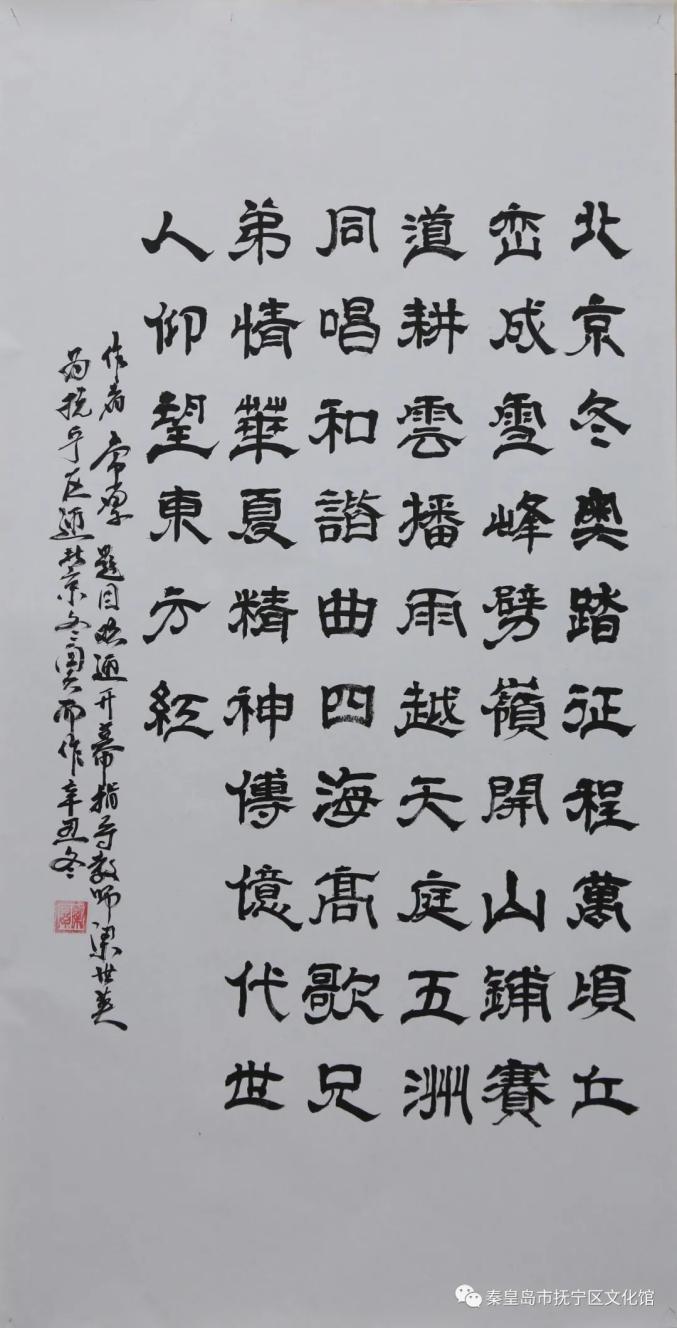 北京冬奥踏征程萬頃丘
峦成雪峰劈嶺開山鋪賽
道耕雲播雨越天庭五洲
同唱和諧曲四海高歌兄
弟情華夏精神傳憶代世
人仰望東方紅
作者 題目 迎开幕指导教师梁世英
为抚宁区迎北京冬奥而作辛丑冬
秦皇岛市抚宁区文化馆